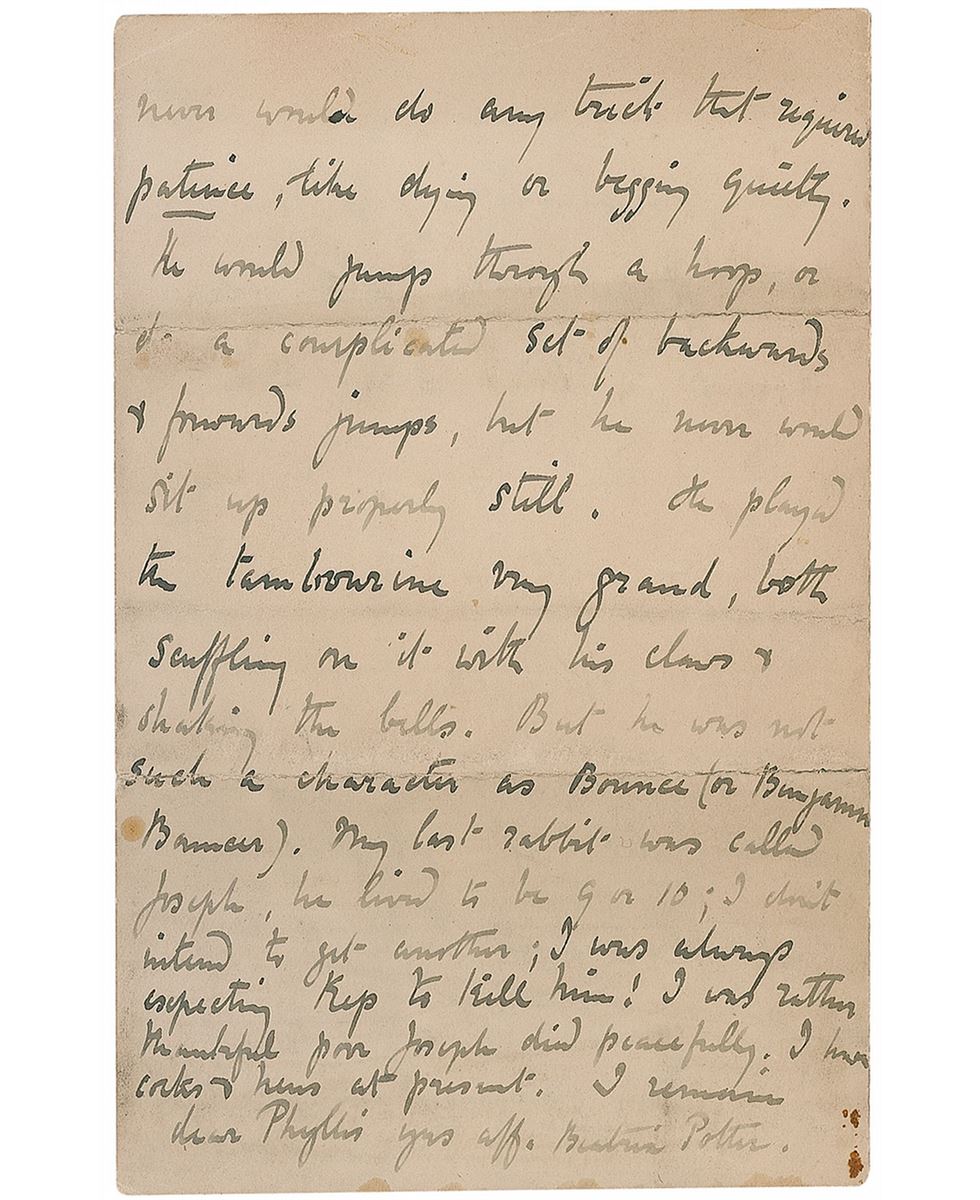 never would do any trick that required
patience, like dying or begging quietly.
He would jump through a hoop, or
do a complicated set of backwards
& forwards jumps, but he never would
sit up properly still. He played
the tambourine very grand, both
scuffling on it with his claws &
shaking the bells. But he was not
such a character as Bounce (or Benjamin
Bouncer). My last rabbit was called
Joseph, he lived to be 9 or 10; I don't
intend to get another; I was always
expecting Kep to kill him! I was rather
thankful poor Joseph died peacefully. I have
cocks & hens at present. I remain
dear Phyllis yrs aff. Beatrix Potter.